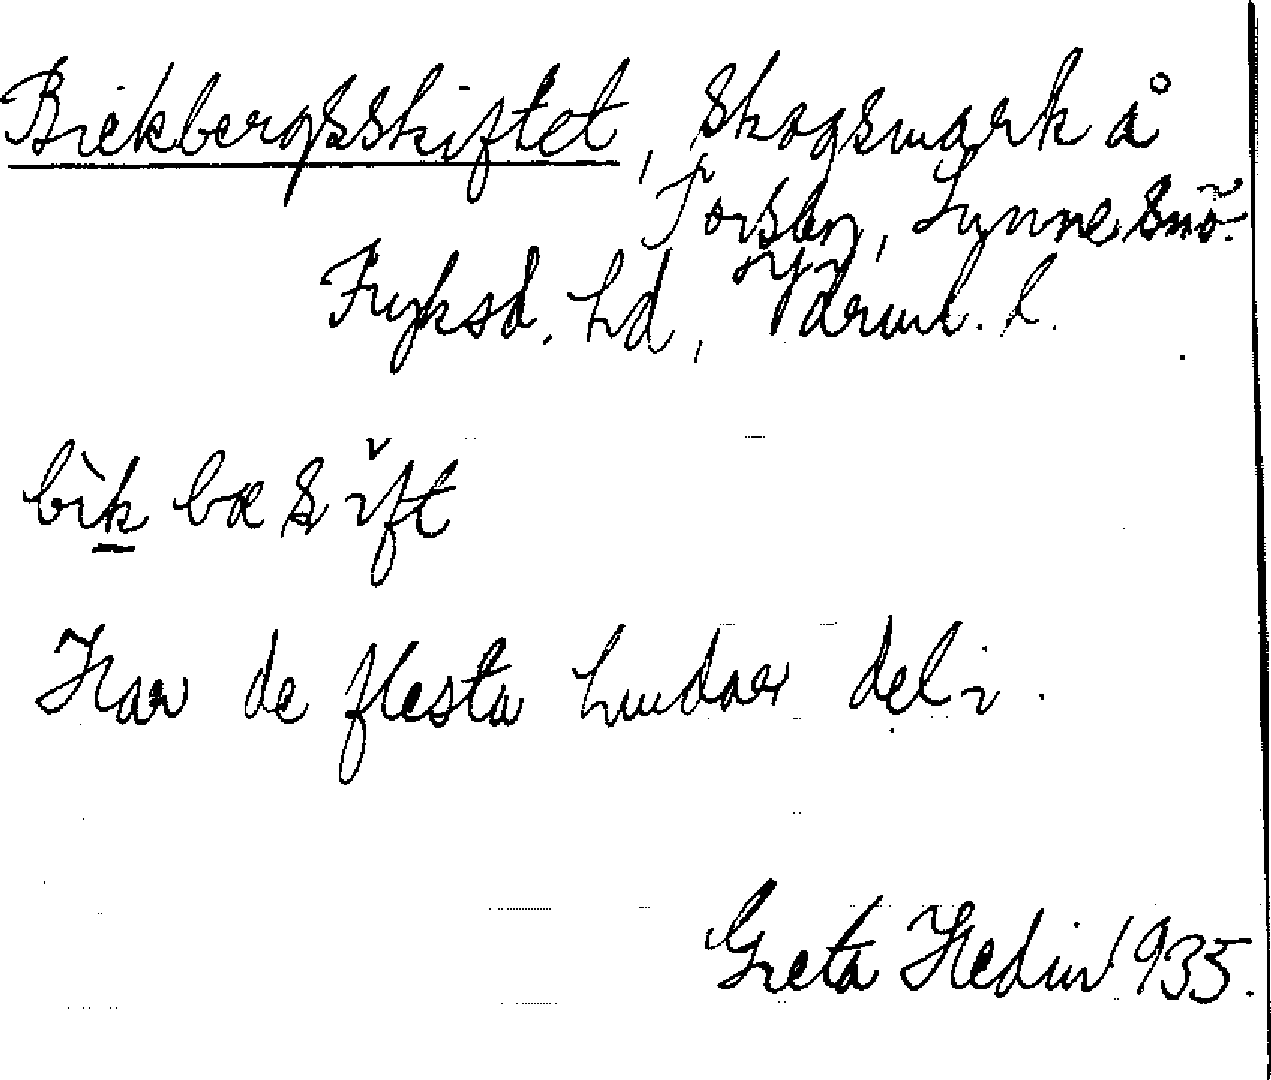 Bickbergsskiftet, skogsmark å
Forsby, Lynne snö.
Fryksd. hd, Värml. l.
bìk bœ s ĭft
Har de flesta hudar del i.
Greta Hedin 1935.